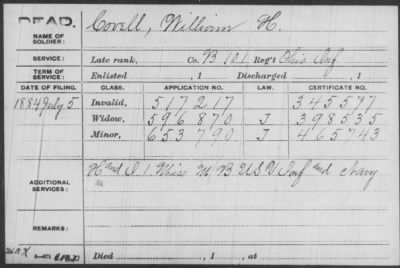 DEAD.
NAME OF SOLDIER: Covell, William H.
SERVICE: Late rank, Co. B 101 Reg't Ohio Inf
TERM OF SERVICE: Enlisted , 1 Discharged , 1
DATE OF FILING. CLASS. APPLICATION NO. LAW. CERTIFICATE NO.
1884 July 5 Invalid, 517217 345577
Widow, 596870 J 398535
Minor, 653790 J 465743
ADDITIONAL SERVICES: H and I 1 Miss M B U S V Inf and Navy
REMARKS:
Died , 1 , at